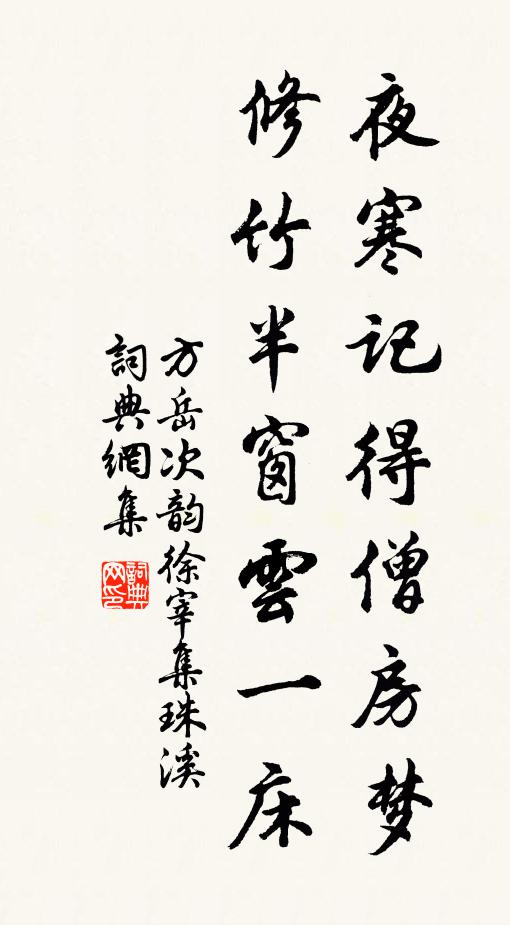 夜寒记得僧房梦
修竹半窗雲一床
方岳次韵徐宰集珠溪
詞典網集
詞典网印